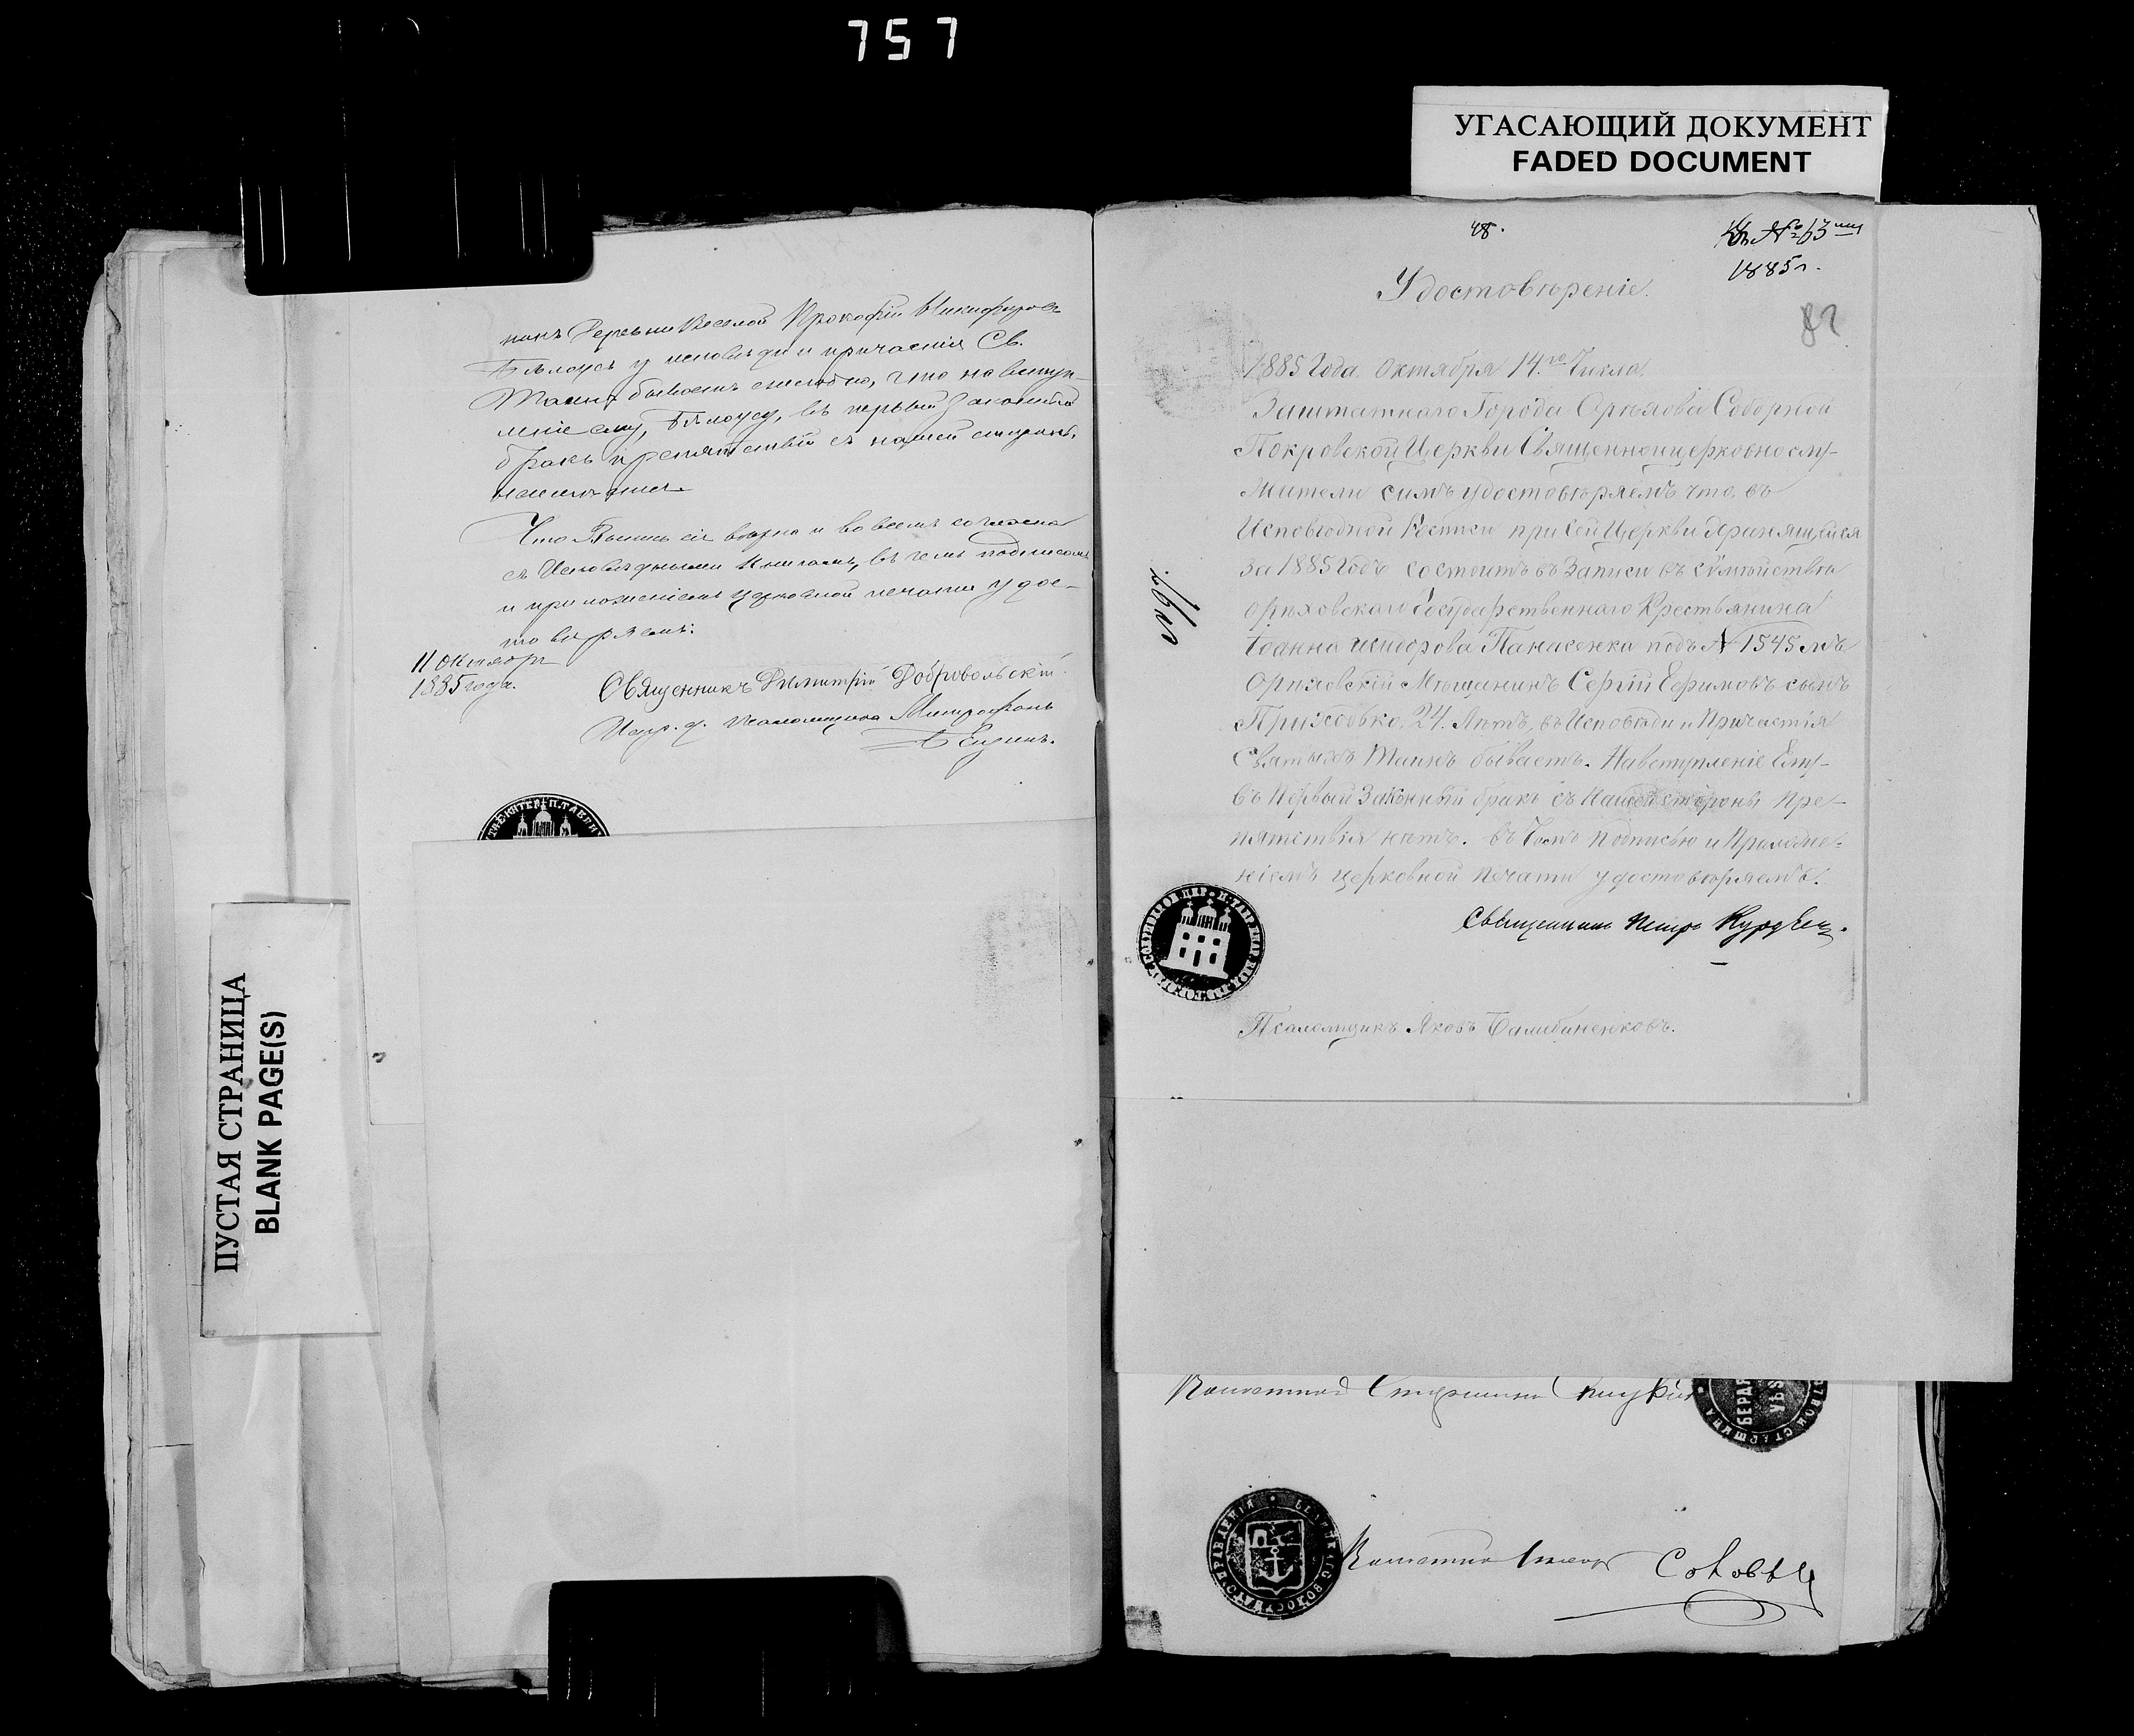 757
УГАСАЮЩИЙ ДОКУМЕНТ
FADED DOCUMENT
ПУСТАЯ СТРАНИЦА
BLANK PAGE(S)
никъ Деревни Веселой Прокофій Никифоровъ
Бѣлоусъ у исповѣди и причастія Св.
Таинъ бываетъ ежегодно, что на вступ-
леніе ему, Бѣлоусу, въ первый законный
бракъ препятствій съ нашей стороны
не имѣется.
Что Выпись сія вѣрна и во всемъ согласна
съ Исповѣдными книгами, въ чемъ подписомъ
и приложеніемъ церковной печати удос-
товѣряемъ:
11 Октября
1885 года.
Священникъ Димитрій Добровольскій
Испр. д. псаломщика Митрофанъ
48.
Къ № 63
1885 г.
82
Удостовѣреніе.
1885 Года Октября 14.го Числа
Заштатнаго Города Орѣхова Соборной
Покровской Церкви Священноицерковнослу-
жители симъ удостовѣряемъ что, въ
Исповѣдной Росписи при сей Церкви хранящейся
за 1885 Годъ состоитъ въ Записи въ сѣмѣйствѣ
орѣховскаго Государственнаго Крестьянина
Іоанна Исидорова Панасенка подъ № 1545 мъ
Орѣховскій Мѣщанинъ Сергій Ефимовъ сынъ
Приходько, 24. Лѣтъ, въ Исповѣди и Причастія
Святыхъ Таинъ бываетъ. На вступленіе Ему-
въ Первый Законный бракъ съ Нашей стороны Пре-
пятствія нѣтъ. въ Чемъ Подписью и Приложе-
ніемъ церковной Печати удостовѣряемъ.
Священникъ Петръ
Псаломщикъ Яковъ
Волостной Старшина
СТАРШИНА
БЕРДЯ
УѢЗ
Волостной Писарь